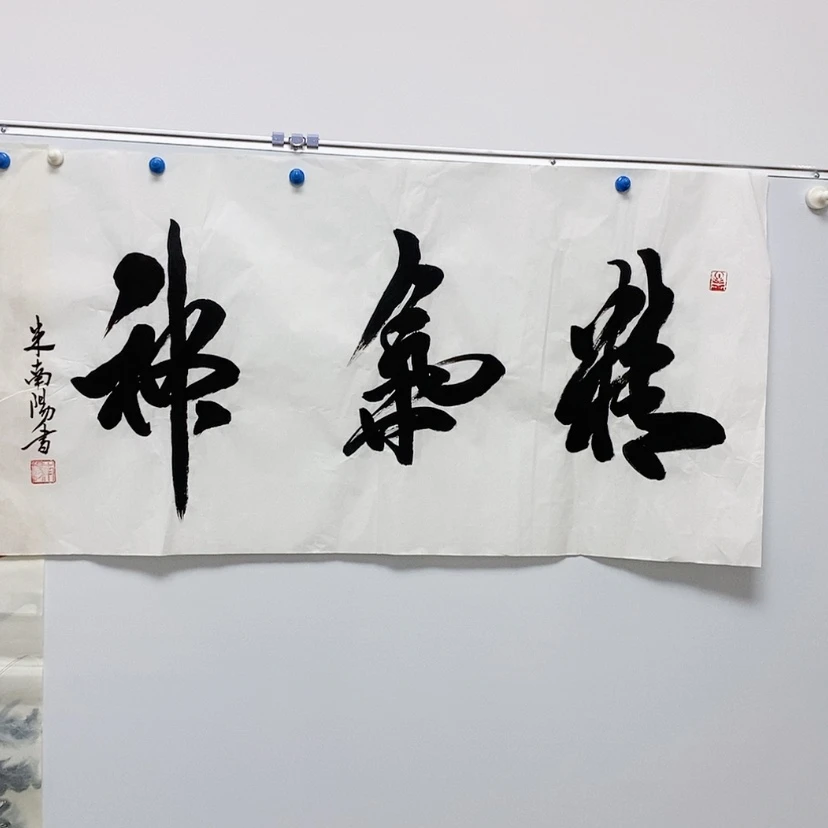 精氣神
米南陽書